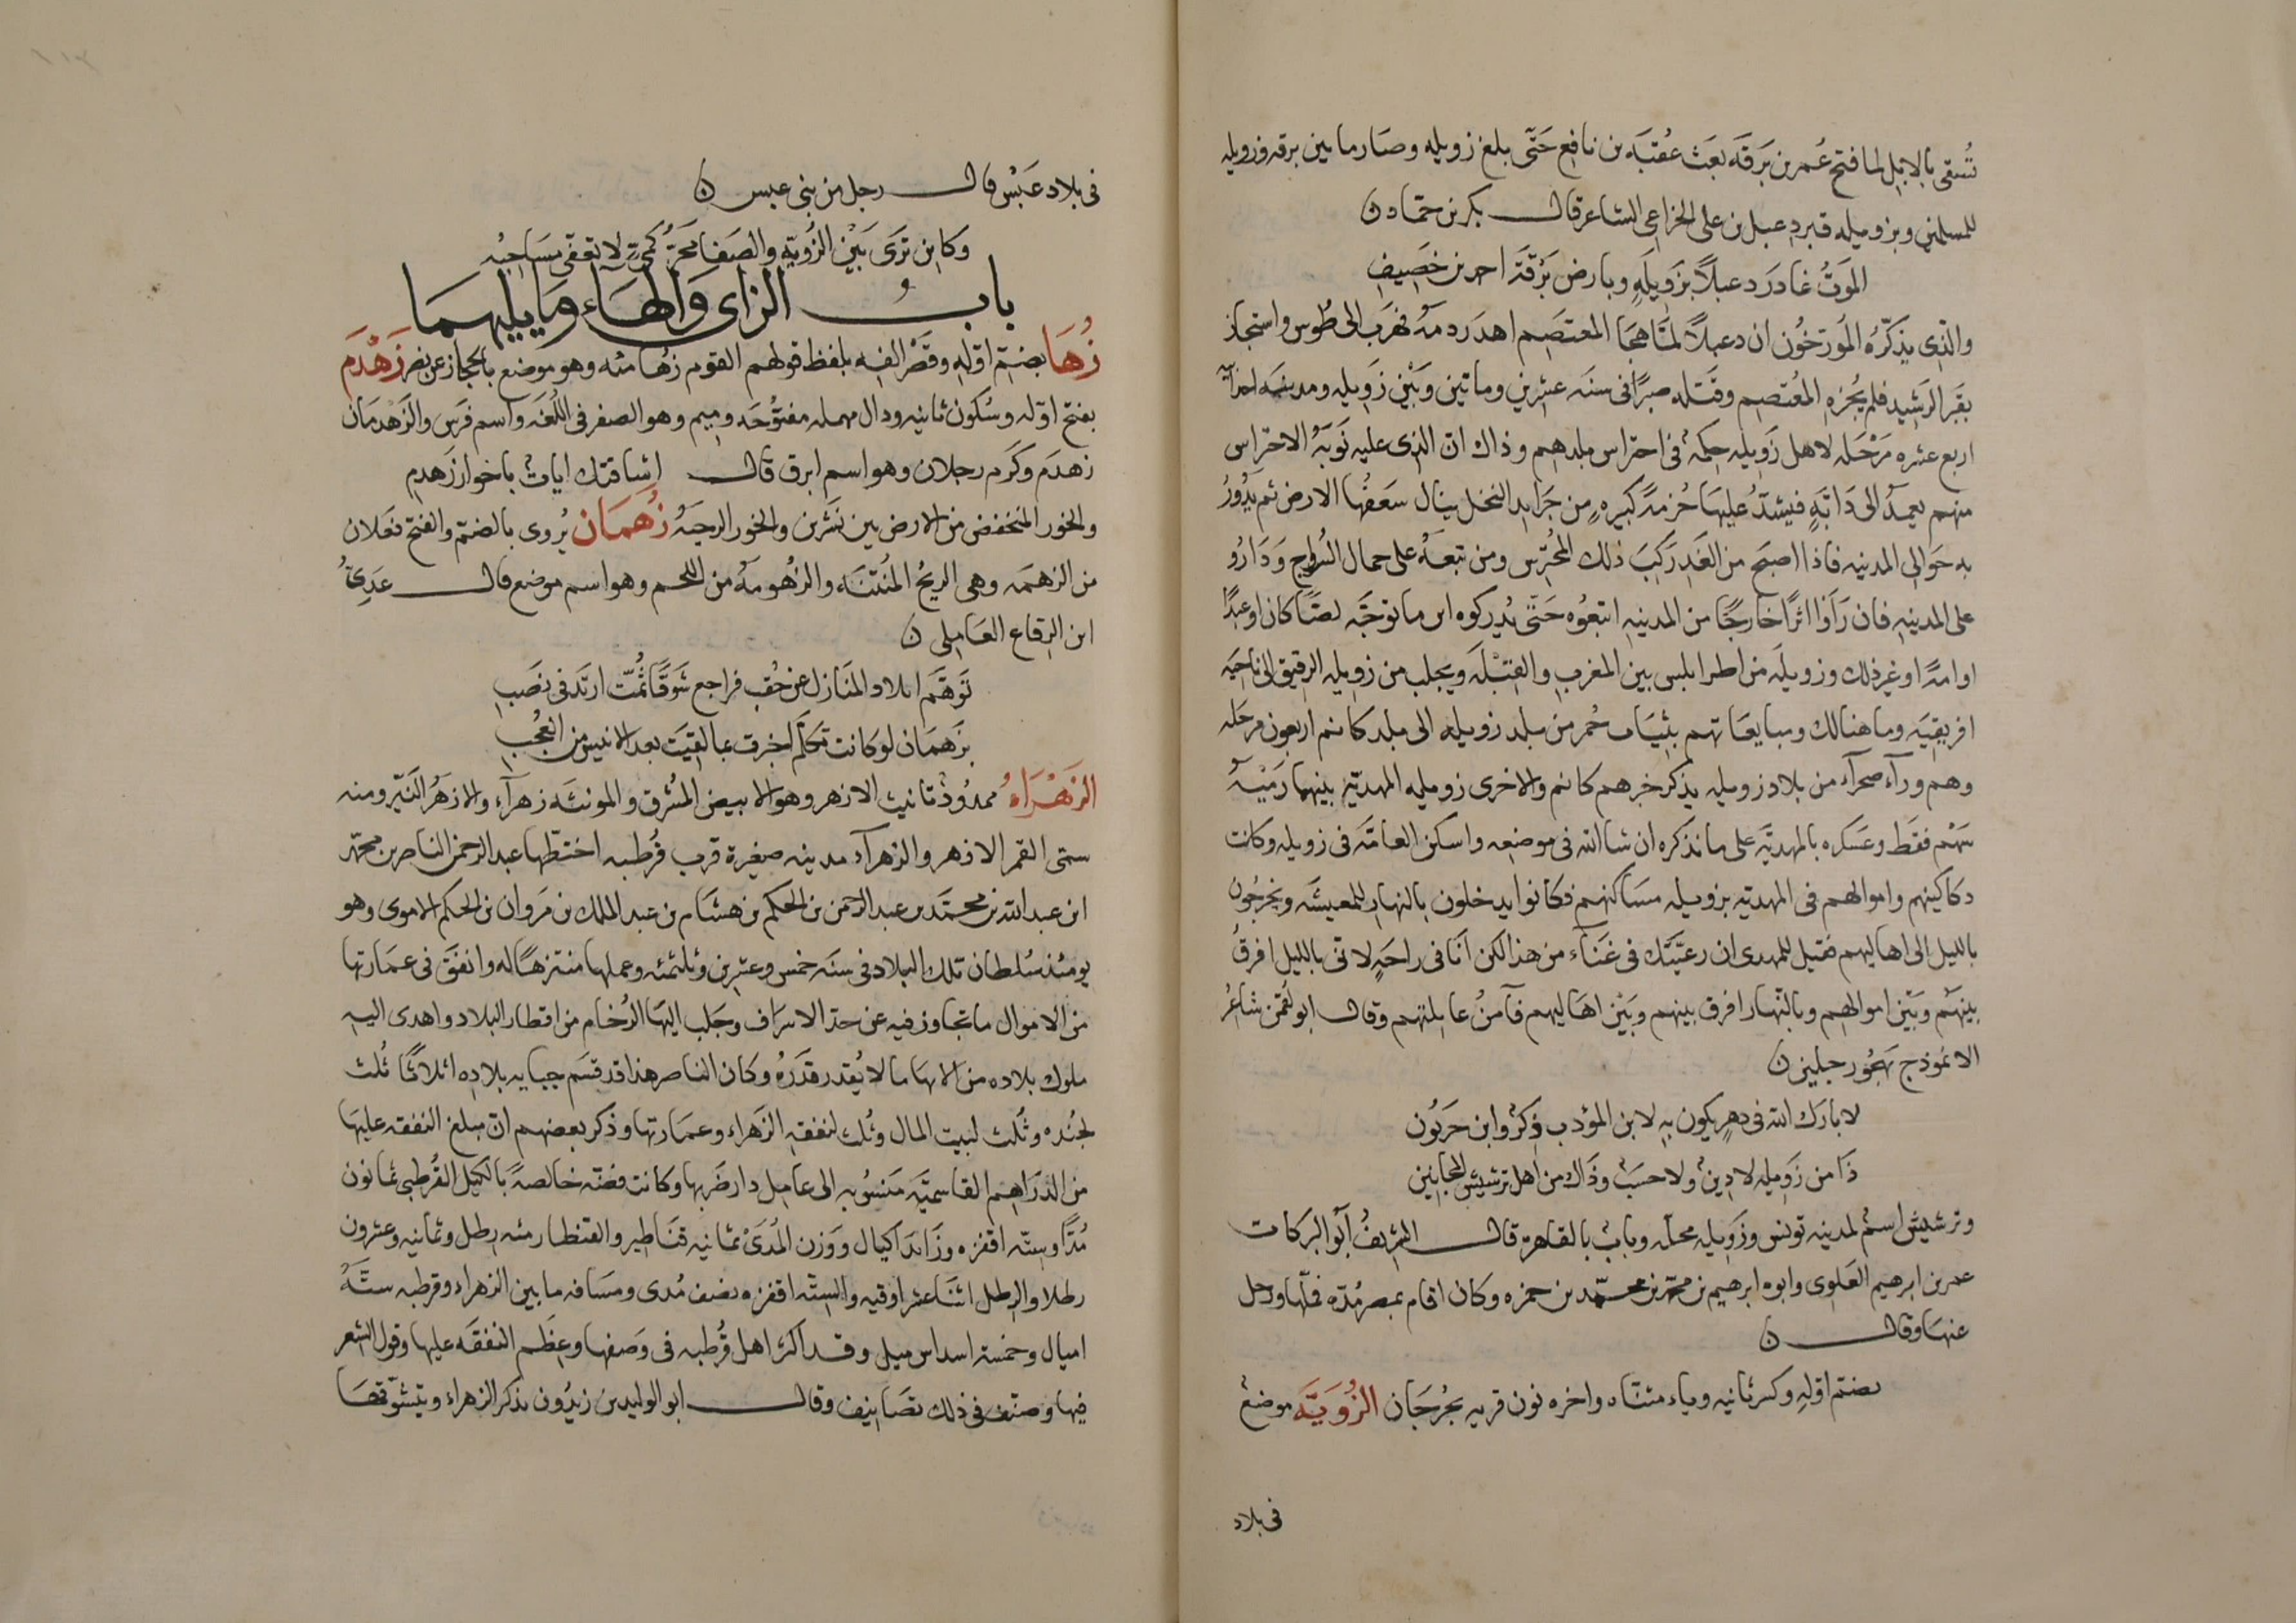 تُسقى بالابل لما فتح عُمر بن بَرقَه بعَث عُقبَه بن نافع حَتّى بلغ زويله وصَار ما بين برقه وزويله
للمسلمين وبزويله قبر دعبل بن على الخزاعى الشاعر قال بكر بن حمّاد ن
المَوتُ غادَر دعبلاً بزَوِيلَهٍ وبارض بَرْقَة احمد بن خَصِيفِ
والذى يذكّره المُورّخُون ان دعبلاً لمّا هَجَا المعتَصِم اهدَر دمهُ فهَرَبَ الى طُوس واستجار
بقبر الرشيد فلم يُجُزه المُعتَصِم وقَتَله صبرًا فى سنَه عشرين وماتين وبَيْن زَويله ومدينه اجدآ
اربع عشره مَرْحَله لاهل زَويله حِكمةٌ فى احتراس بلدهم وذاك انّ الذى عليه نَوبَةُ الاحتراس
منهم يعمدُ الى دَابّةٍ فيشدّ عليهَا حُزمةً كبيره من جَرَايد النخل ينال سَعَفُها الارض ثم يَدُورُ
به حَوالى المدينه فاذا اصبَح من الغَدِ رَكِبَ ذلك المُحتَرِس ومن تبعَهُ على جمال السُروج وَدَارُو
على المدينه فان رَاَوْا اثرًا خارجًا من المدينه اتبعُوه حَتّى يُدركوه اين ما توجّه لصًّا كان او عبدًا
او امةً او غير ذلك وزويلَه من اطرابلس بين المغرب والقِبْلَه ويجلب من زويله الرقيق الى ناحيَه
افريقيَه وما هنالك ومبايعَاتهم بثيَاب حُمر من بلد زويله الى بلد كانم اربعون مَرحَله
وهم ورآء صحرآء من بلاد زويله يذكر خبرهم كانم والاخرى زويله المهديّه بينهما رَمْيَةُ
سَهْم فقَط وعَسكره بالمهديَه على ما نذكره ان شا الله فى موضعه واسكن العامّه فى زويله وكانت
دكاكينهم واموالهم فى المهديه بزويله مسَاكنهم فكانوا يدخلون بالنهار للمعيشَه ويخرجُون
بالليل الى اهاليهم فقيل للمهدى ان رعيّتَك فى عَنَآء من هذا لكن انا فى راحَةٍ لانّى بالليل افرقُ
بينَهُم وبَيْن اموالهم وبالنّهار افرق بينهم وبَيْن اهاليهم فآمنُ غايلتهم وقال ابو لقمن شاعِرُ
الانموذج يَهجُور جلين ن
لا بارَك الله فى دهرٍ يكون بهِ لابن المؤدب ذِكرٌ وابن حَربُون
ذَا من زَوِيله لا دِينٌ ولا حسَبٌ وذَاك من اهل ترشيش المجانين
وترشيش اسمٌ لمدينه تونس وزَوِيله محلّه وبابٌ بالقاهرة قال الشريفُ ابو البركات
عمر بن ابرهيم العَلوى وابوه ابرهيم بن محمّد بن محمّد بن حمزه وكان اقام بمصر مُدّه فملّها ورحل
عنهَا وقال ن
بضمّ اوّلهِ وكسر ثانيه وياء مثنّاه واخره نون قريه بجُرجَان الزُوَيَّه موضعٌ
فى بلاد
فى بلاد عَبْسٍ قال رجل من بنى عبس ن
وكاين تَرَى بَيْن الزُويّهِ والصَفا مَجَرَّ كَمِىّ لا تعفّى مسَاحِبُه
بابُ الزاى وَالهَاء وما يليهمَا
زُهَا بضمّ اوّله وقَصْر الفِه بلفظ قولهم القوم زُهَا مئه وهو موضع بالحجاز عن نصر زَهْدَم
بفتح اوّله وسُكون ثانيه ودال مهمله مفتُوحَه وميم وهو الصقر فى اللُغَه واسم فَرَس والزَهدمَان
زهدَم وكَرَم رجلان وهو اسم ابرق قال اشاقتك اياتٌ باخوار زَهدِم
والخور المنخفض من الارض بين نَشزين والخور الرحبَهُ زُهمَان يُروى بالضمّ والفتح فعَلان
من الزهمَه وهى الريحُ المُنتنَه والزُهُومَهُ من اللحم وهو اسم موضع قال عَدِىُّ
ابن الرِقاع العَامِلى ن
تَوهّمَ ابلاد المنَازل عن حُقب فراجع شَوقًا ثُمّت ارتدّ فى نصَب
بزَهمَان لو كانت تكلّم اخبرت بما لقيَت بعد الانيس من العَجَبِ
الزَهْرَاءُ ممدُودٌ تانيث الازهر وهو الابيض المُشرق والمونثه زهرآء والازهَرُ النَيّر ومنه
سمّى القمر الازهر والزهرآء مدينه صغيرة قرب قُرطبه اختطّها عبد الرحمن الناصر بن محمّد
ابن عبد الله بن محمَّد بن عبد الرحمن بن الحكم بن هشَام بن عبد الملك بن مَروان بن الحكم الاموى وهو
يومئذ سُلطان تلك البلاد فى سنَه خمس وعشرين وثلثمئه وعملها منتزهًا له وانفَق فى عمَارتها
من الاموال ما تجاوز فيه عن حدّ الاسرَاف وجَلب اليهَا الرُخام من اقطار البلاد واهدى اليه
ملوك بلاده من الالهَا ما لا يُقدر قَدرُهُ وكان الناصر هذا قد قسَم جبايه بلادِه اثلاثًا ثُلث
لجُنده وثُلث لبيت المال وثُلث لنفقهِ الزَهراء وعمَارتها وذكر بعضهم انّ مبلغ النفقه عليهَا
من الدَرَاهِم القاسميَّه مَنسُوبه الى عامِل دار ضَربها وكانت فضّه خالصةً بالكيل القُرطبى ثمانون
مُدًّا وستّه اقفزه وزَايد اكيال ووَزن المُدىْ ثمانيه قنَاطير والقنطار مئه رطل وثمانيه وعشرون
رطلا والرطل اثنَا عشر اوقيه والستّه اقفزه نصف مُدى ومسَافه ما بين الزهراء وقرطبه ستّةُ
اميال وخمسة اسداس ميل وقد اكثر اهل قُرطبه فى وَصفها وعِظَم النفقَه عليها وقول الشعر
فيها وصنّف فى ذلك تصَانيف وقال ابو الوليد بن زيدُون يذكر الزهراء ويتشوّقهَا